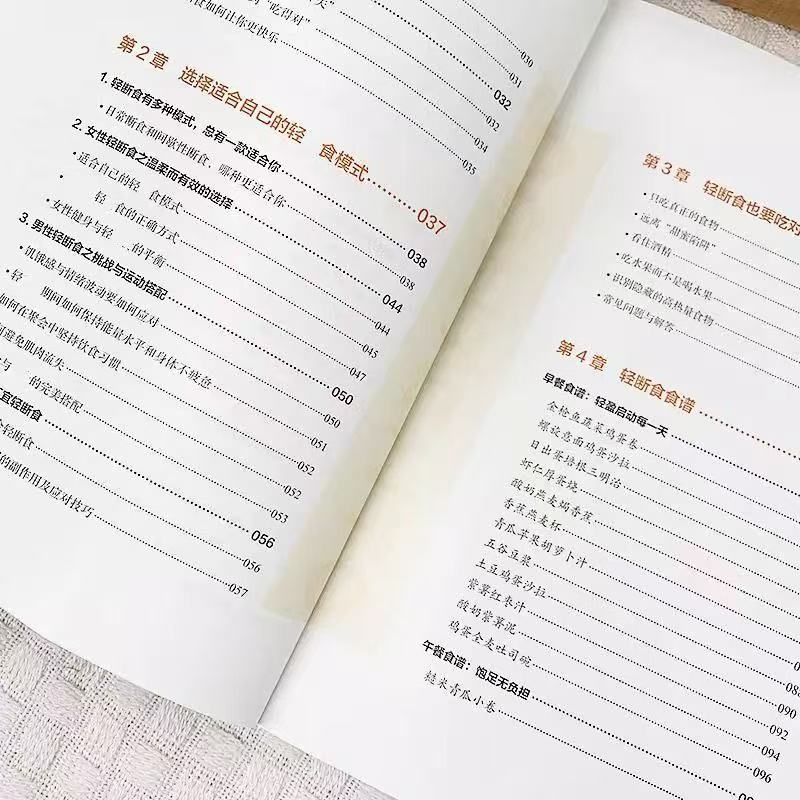 天"
的"吃得对"
食如何让你更快乐
030
031
032
032
034
035
第2章 选择适合自己的轻 食模式 037
1. 轻断食有多种模式，总有一款适合你 038
• 日常断食和间歇性断食、哪种更适合你 038
2. 女性轻断食之温柔而有效的选择 044
• 适合自己的轻 食模式 044
• 轻 食的正确方式 045
• 女性健身与轻 的平衡 047
3. 男性轻断食之挑战与运动搭配 050
• 饥饿感与情绪波动要如何应对 050
• 轻 期间如何保持能量水平和身体不疲乏 051
如何在聚会中坚持饮食习惯 052
何避免肌肉流失 052
食与 的完美搭配 053
宜轻断食 056
轻断食 056
的副作用及应对技巧 057
第3章 轻断食也要吃对
• 只吃真正的食物
• 远离"甜蜜陷阱"
• 看住酒精
• 吃水果而不是喝水果
• 识别隐藏的高热量食物
• 常见问题与解答
第4章 轻断食食谱
早餐食谱：轻盈启动每一天
金枪鱼蔬菜鸡蛋卷
螺旋意面鸡蛋沙拉
日出蛋培根三明治
虾仁厚蛋烧
酸奶燕麦焗香蕉
香蕉燕麦杯
青瓜苹果胡萝卜汁
五谷豆浆
土豆鸡蛋沙拉
紫薯红枣汁
酸奶紫薯泥 088
鸡蛋全麦吐司碗 090
午餐食谱：饱足无负担 092
糙米青瓜小卷 094
096